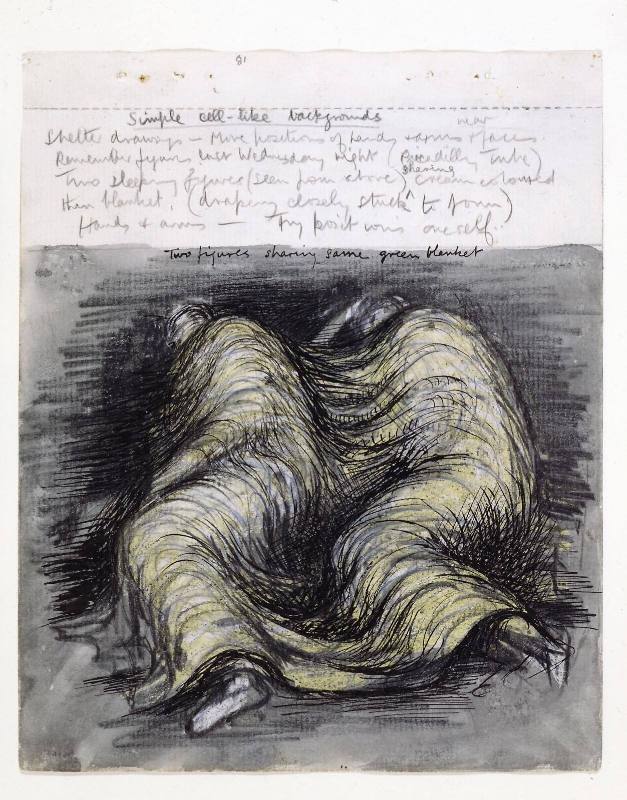 81
Simple cell-like backgrounds
near
Shelter drawings — More positions of hands & arms & faces.
Remember figures last Wednesday night (Piccadilly Tube)
Two sleeping figures (seen from above) sharing cream coloured
thin blanket. (drapery closely stuck to form)
Hands & arms — Try positions oneself.
Two figures sharing same green blanket